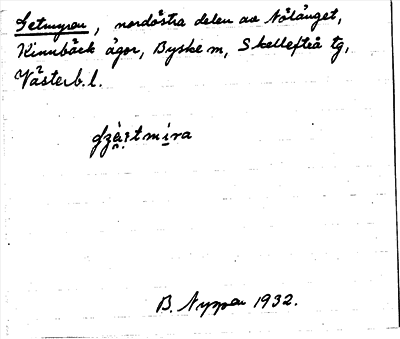 Getmyran, nordöstra delen av Nölänget,
Kinnbäck ägor, Byske sn, Skellefteå tg,
Västerb. l.
B. Nyman 1932.